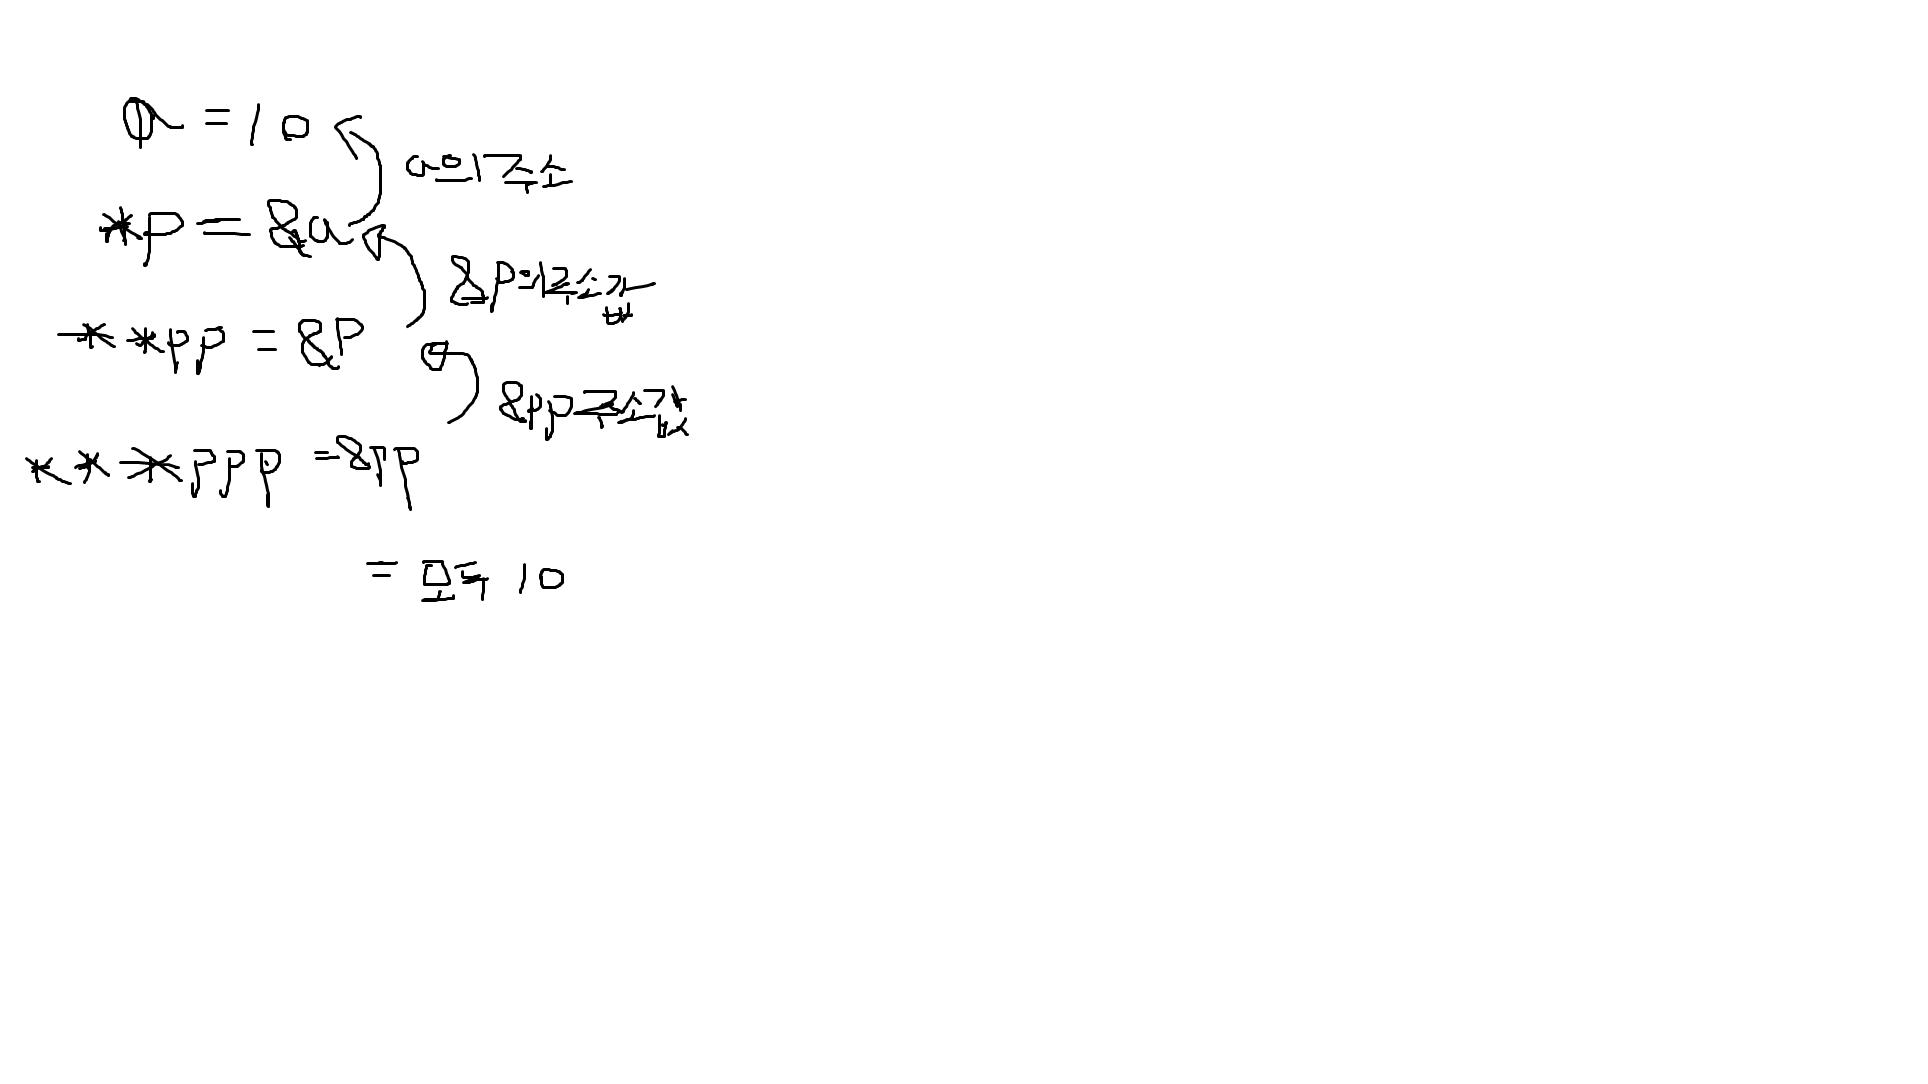 a = 10
a의 주소
*p = &a
&p의 주소값
**pp = &p
&pp 주소값
***ppp = &pp
= 모두 10